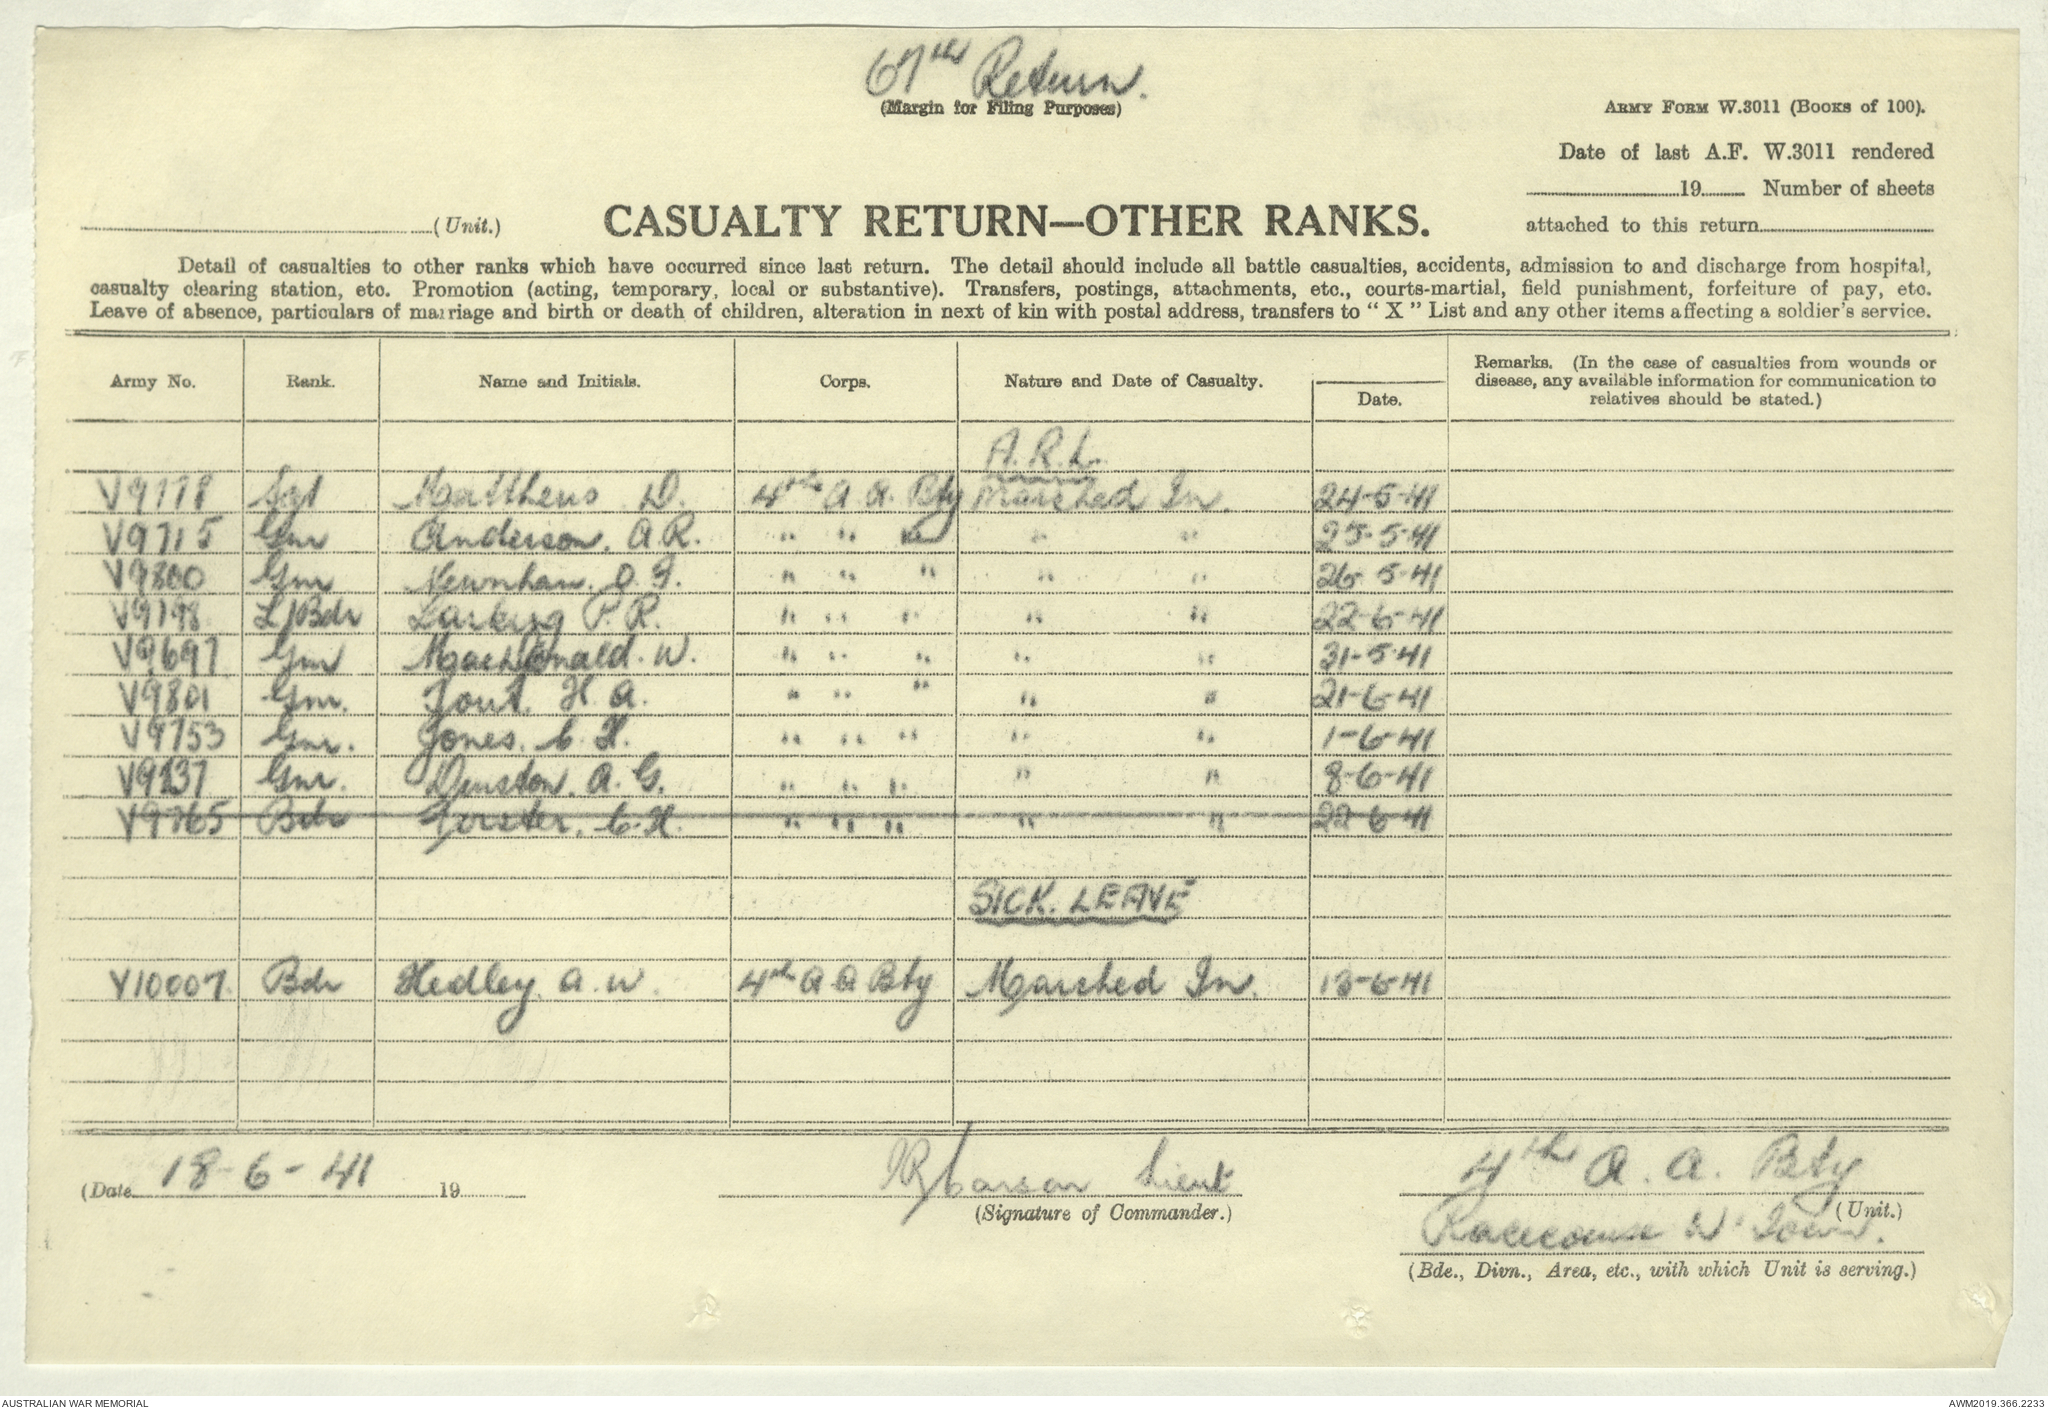 67th Return.
(Margin for Filing Purposes)
ARMY FORM W.3011 (Books of 100).
Date of last A.F. W.3011 rendered
19 Number of sheets
attached to this return
(Unit.)
CASUALTY RETURN—OTHER RANKS.
Detail of casualties to other ranks which have occurred since last return. The detail should include all battle casualties, accidents, admission to and discharge from hospital,
casualty clearing station, etc. Promotion (acting, temporary, local or substantive). Transfers, postings, attachments, etc., courts-martial, field punishment, forfeiture of pay, etc.
Leave of absence, particulars of marriage and birth or death of children, alteration in next of kin with postal address, transfers to "X" List and any other items affecting a soldier's service.
Army No. Rank. Name and Initials. Corps. Nature and Date of Casualty. Date. Remarks. (In the case of casualties from wounds or
disease, any available information for communication to
relatives should be stated.)
A.R.L.
Sgt Matthews D. 4th A A Bty Marched In. 24-5-41
V9715 Gnr Anderson. A.R. " " " " " 25-5-41
V9800 Gnr Newnham. O. " " " " " 26-5-41
V9798 L/Bdr P. R. " " " " " 22-6-41
V9697 Gnr MacDonald. W. " " " " " 31-5-41
V9801 Gnr. H. A. " " " " " 21-6-41
V9753 Gnr. Jones. C. H. " " " " " 1-6-41
Gnr. Dunston. A. G. " " " " " 8-6-41
V9765 Bdr C. H. " " " " " 22-6-41
SICK. LEAVE
V10007. Bdr Hedley. A. W. 4th A A Bty Marched In. 13-6-41
(Date 18-6-41 19
Carson Lieut
(Signature of Commander.)
4th A. A. Bty
(Unit.)
Racecourse W' Town.
(Bde., Divn., Area, etc., with which Unit is serving.)
AUSTRALIAN WAR MEMORIAL
AWM2019.366.2233